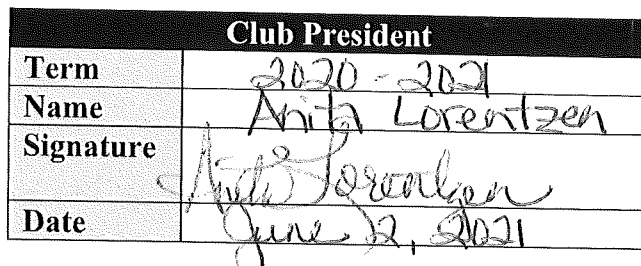 Club President
Term 2020-2021
Name Anita Lorentzen
Signature Anita Lorentzen
Date June 2, 2021